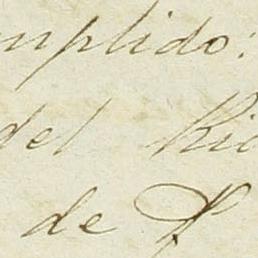 mplido:
del Rio
de P